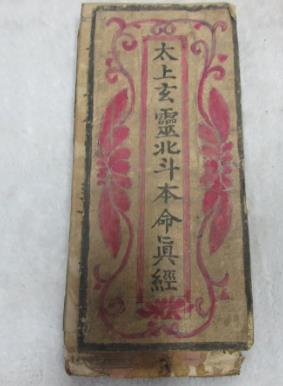 太上玄靈北斗本命眞經